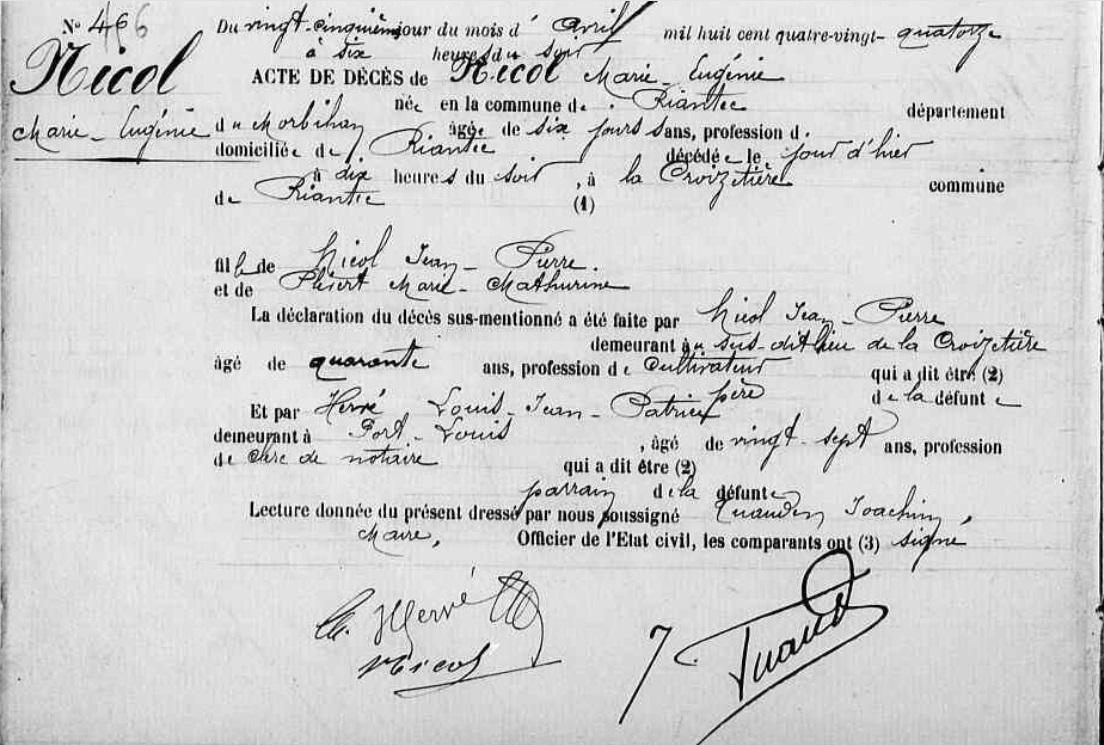 N° 466
Du vingt-cinquième jour du mois d'Avril mil huit cent quatre-vingt-quatorze
à six heures du soir
Nicol
Marie-Eugénie
ACTE DE DÉCÈS de Nicol Marie-Eugénie
née en la commune de Riantec département
du Morbihan âgée de six jours ans, profession d
domiciliée de Riantec décédée le jour d'hier
à dix heures du soir, à la Croizetière commune
de Riantec (1)
fille de Nicol Jean-Pierre.
et de Marie-Mathurine
La déclaration du décès sus-mentionné a été faite par Nicol Jean-Pierre
demeurant au sus-dit lieu de la Croizetière
âgé de quarante ans, profession de Cultivateur qui a dit être (2)
père de la défunte
Et par Hervé Louis-Jean-Patrice
demeurant à Port-Louis, âgé de vingt-sept ans, profession
de clerc de notaire qui a dit être (2)
parrain de la défunte
Lecture donnée du présent dressé par nous soussigné Joachim,
Maire, Officier de l'Etat civil, les comparants ont (3) signé
Hervé
Nicol
J